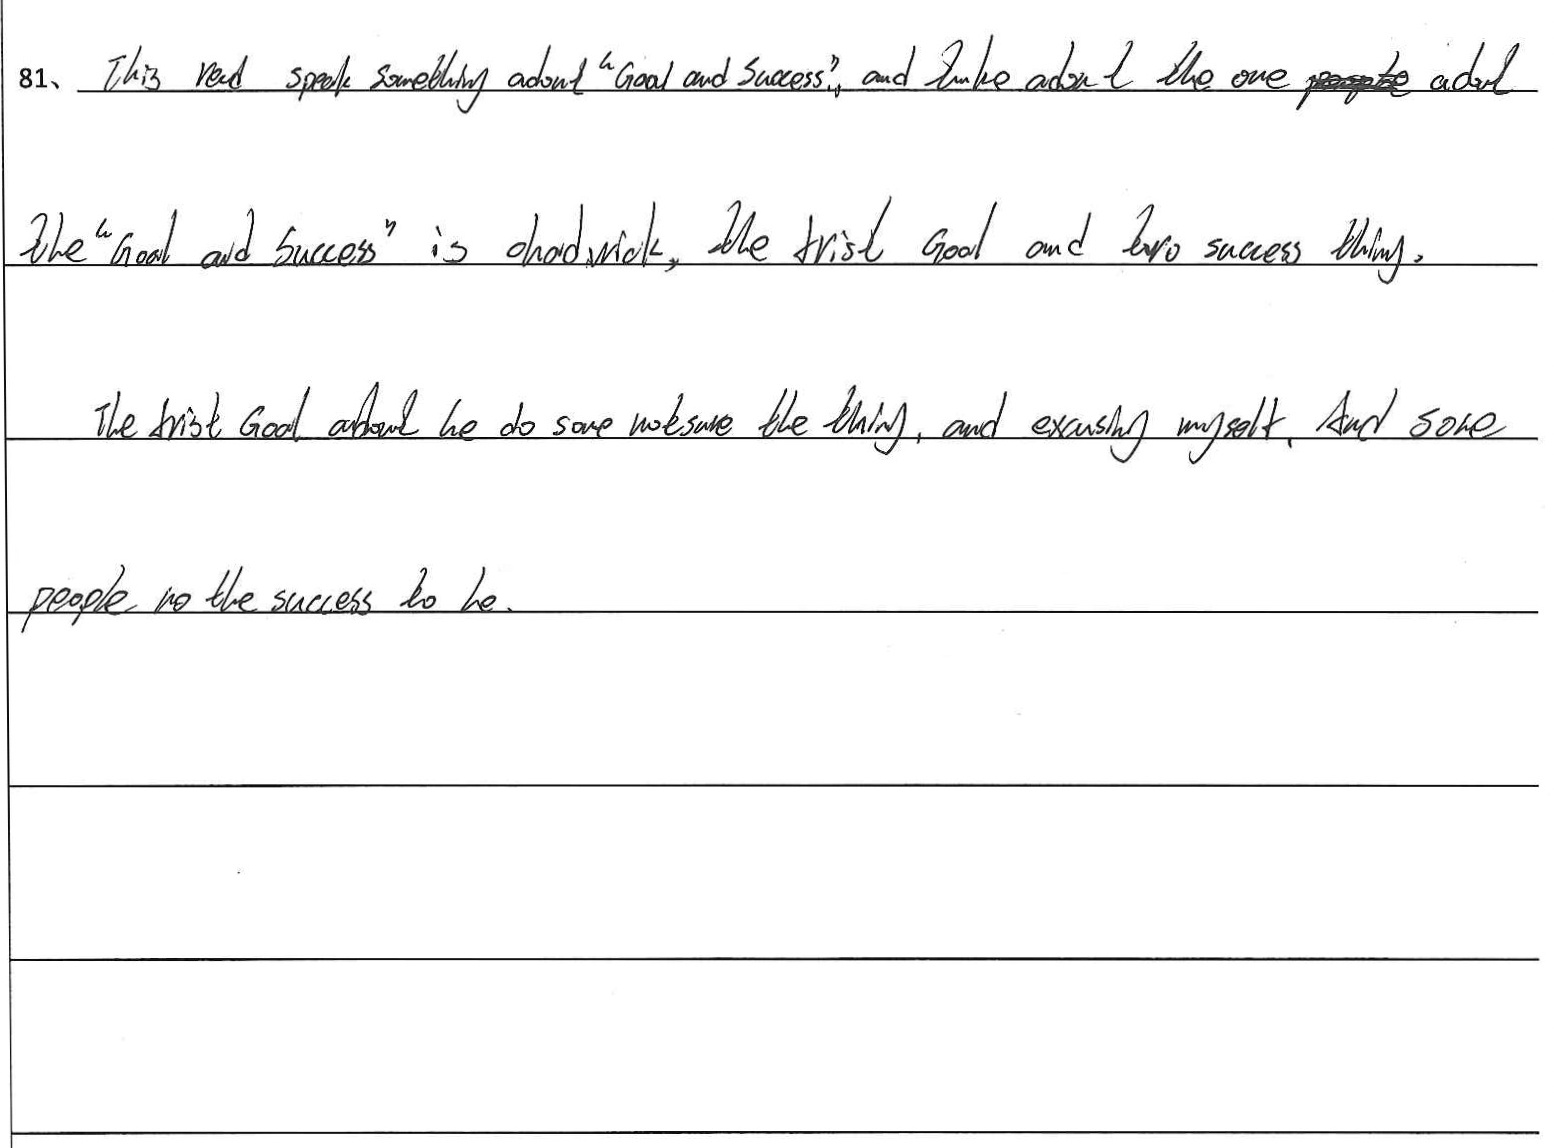 81、 This read speak something adout "Goal and Success", and take adout the one adout
the "Goal and Success" is chadwick, the frist Goal and two success thing.
The frist Goal adout he do some notsure the thing, and excusing myself. And some
people no the success to he.